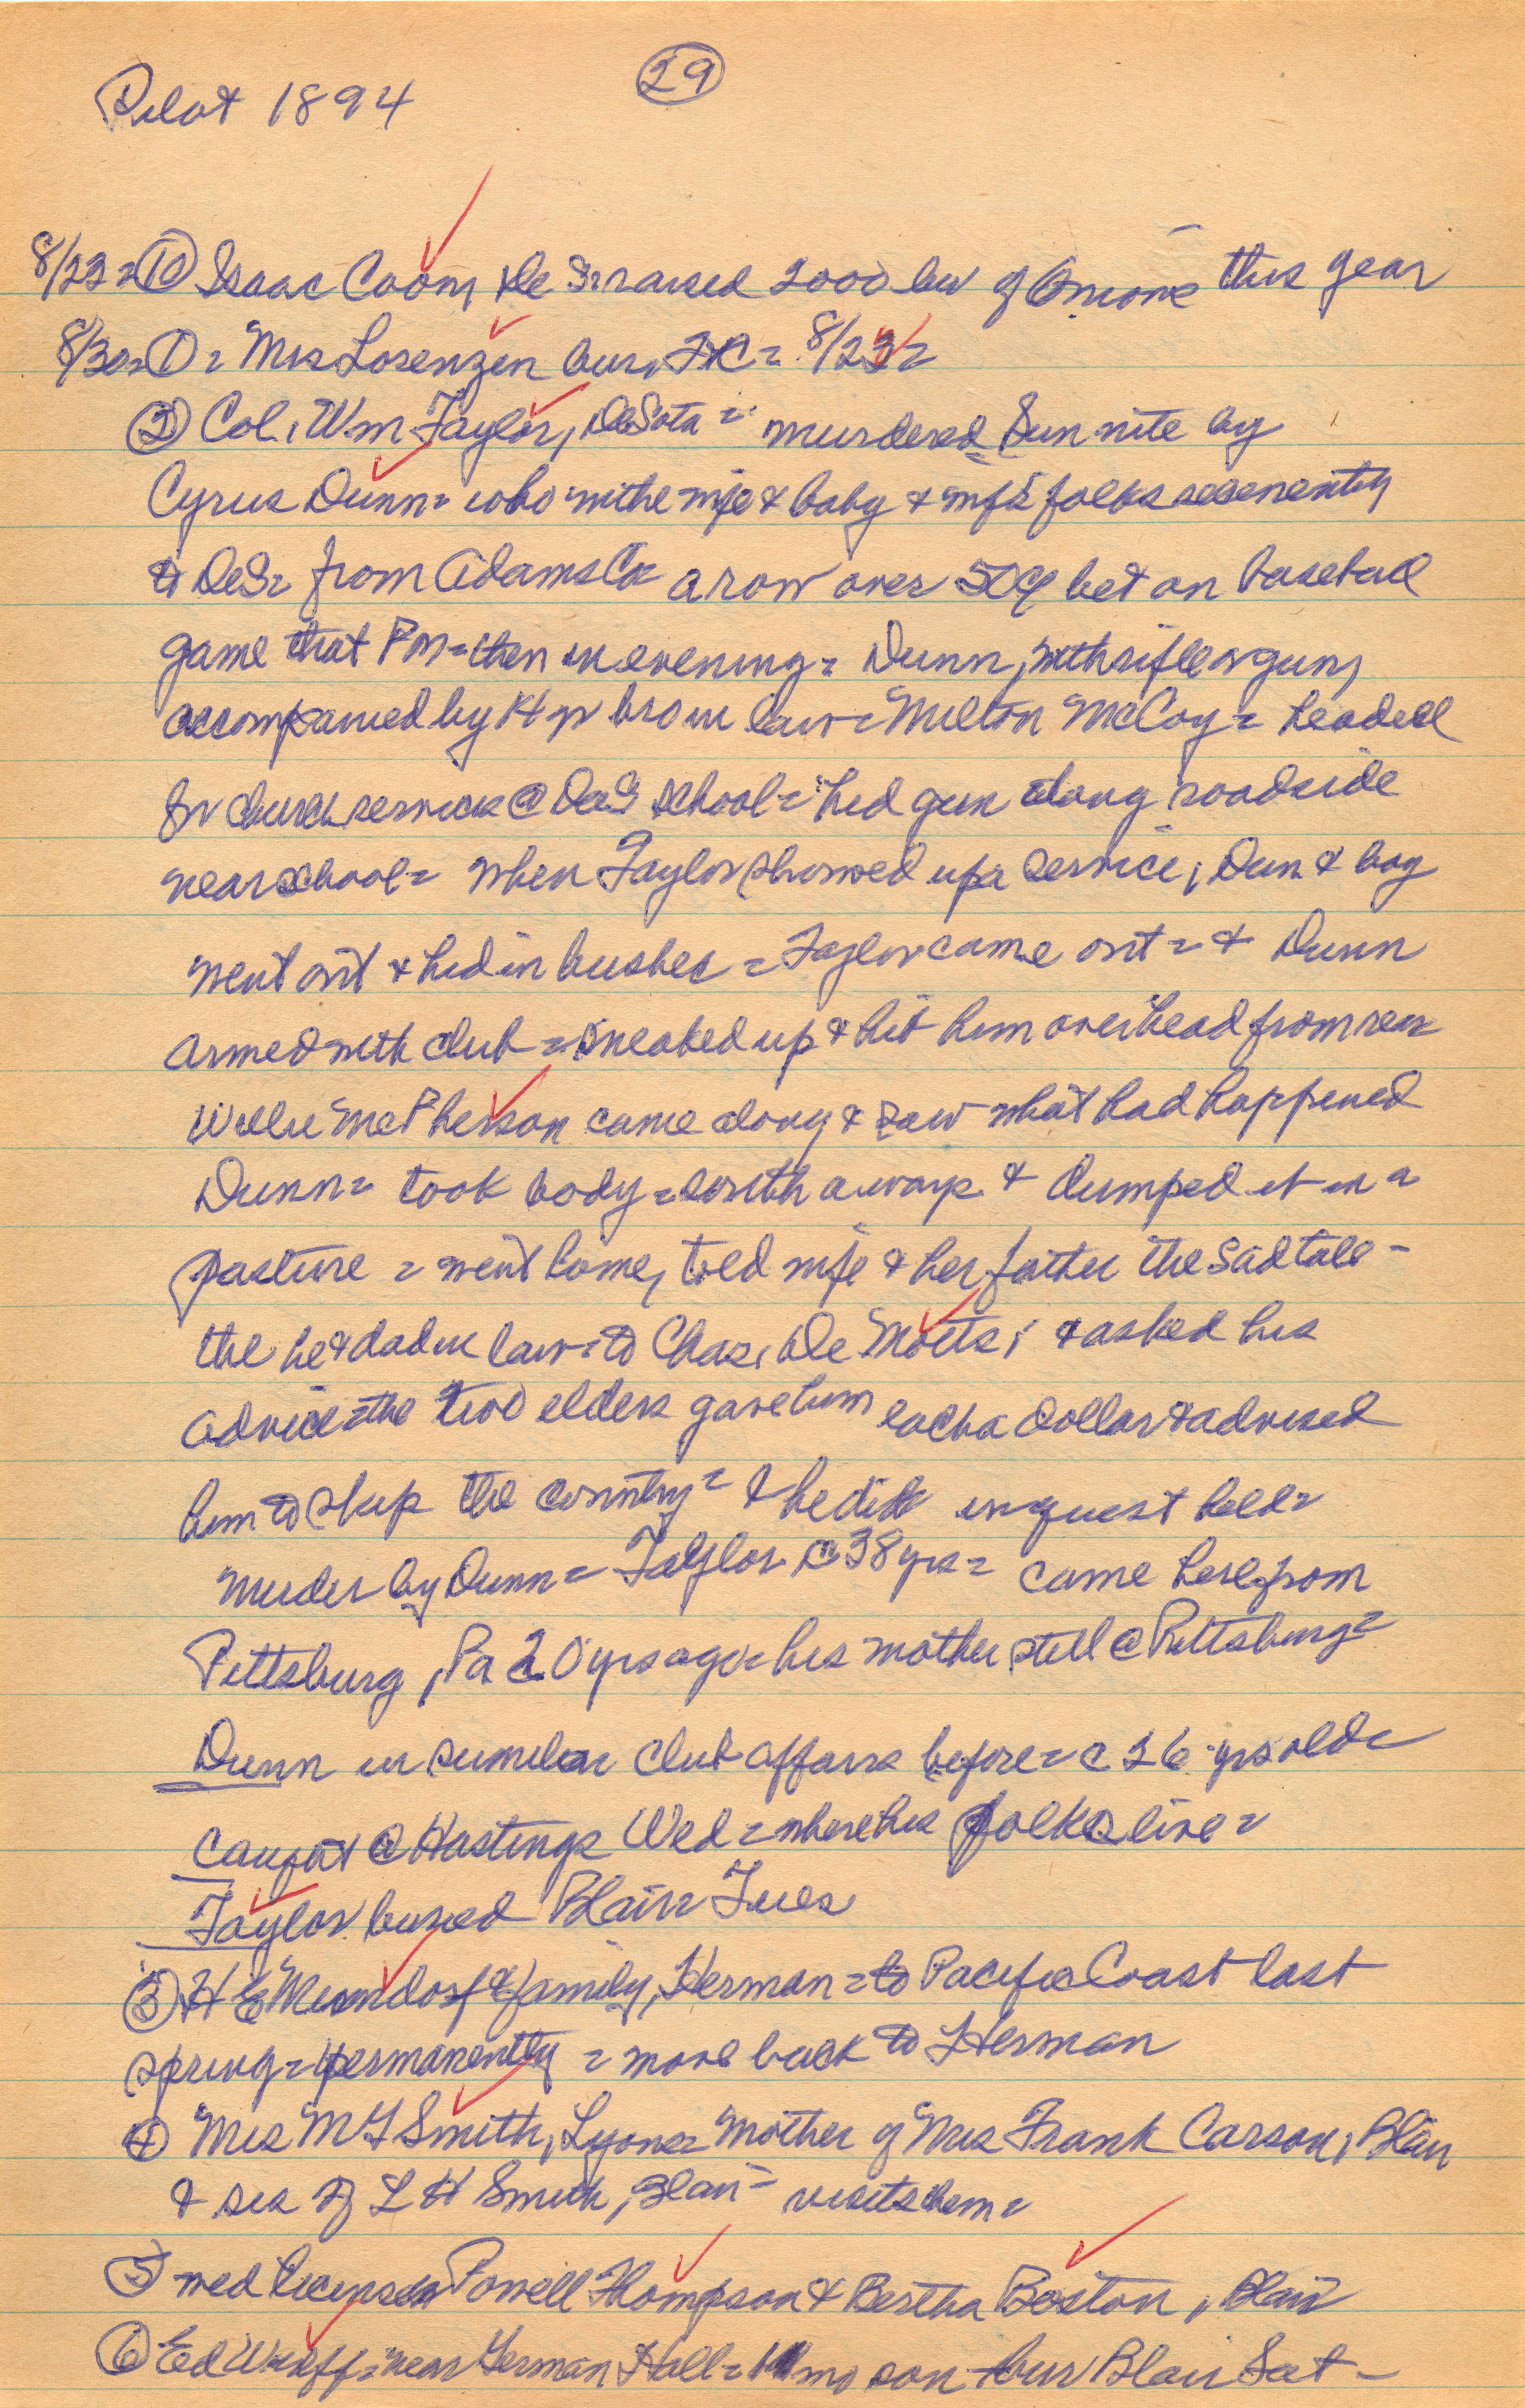 Pilot 1894
29
8/23 = 10 Isaac Coon, De S = raised 2000 bu of Onions this year
8/30 = 1 = Mrs Lorenzen bur, = 8/23 =
2 Col. Wm Taylor, DeSota = murdered Sun nite by
Cyrus Dunn = who withe wife & baby & wifs folks
to DeS = from Adams Co = a row over 50¢ bet on baseball
game that PM = then in evening = Dunn, with rifle or gun,
accompanied by 14 yr bro in law = Milton McCoy = headed
for church services @ DeS school = hid gun along roadside
near school = when Taylor showed up a service, Dun & boy
went out & hid in bushes = Taylor came out = & Dunn
armed with club = sneaked up & hit him over head from rear
Willie McPherson came along & saw what had happened
Dunn = took body = south a ways & dumped it in a
pasture = went home, told wife & her father the sad tale -
the he & dad in law = to Chas, De Motts, & asked his
advice = the two elders gave him each a dollar & advised
him to skip the country = & he did inquest held =
murder by Dunn = Taylor c 38 yrs = came here from
Pittsburg, Pa 20 yrs ago = his mother still @ Pittsburg =
Dunn in similar club affairs before = c 26 yrs old =
Caught @ Hastings Wed = where his folks live =
Taylor buried Blair = Tues
3 H E & family, Herman = to Pacific Coast last
spring = permanently = move back to Herman
4 Mrs M T Smith, Lyons = mother of Mrs Frank Carson, Blair
& sis of L H Smith, Blair = visits them =
5 wed licenses = Powell Thompson & Bertha Boston, Blair
6 Ed = near German Hall = mo son - bur Blair Sat -